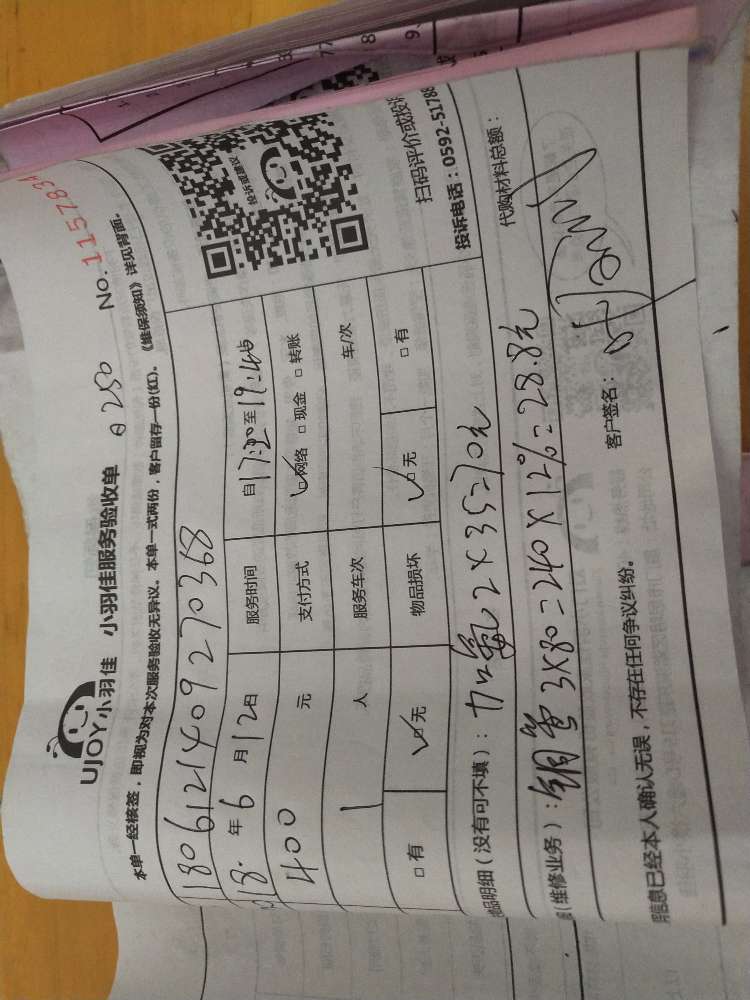 UJOY小羽佳 小羽佳服务验收单 250 No.1157834
本单一经核签,即视为对本次服务验收无异议。本单一式两份,客户留存一份(红)。《维保须知》详见背面。
1806121409270368
18.年6月12日 服务时间 自17:20至19:45
400 元 支付方式 ☑网络 □现金 □转账
1 人 服务车次 车/次
□有 ☑无 物品损坏 ☑无 □有
投诉或建议
扫码评价或投诉
投诉电话:0592-51788
品明细(没有可不填):加氟2×35=70元 代购材料总额:
(维修业务):铜管3×80=240×12%=28.8元
信息已经本人确认无误,不存在任何争议纠纷。 客户签名: